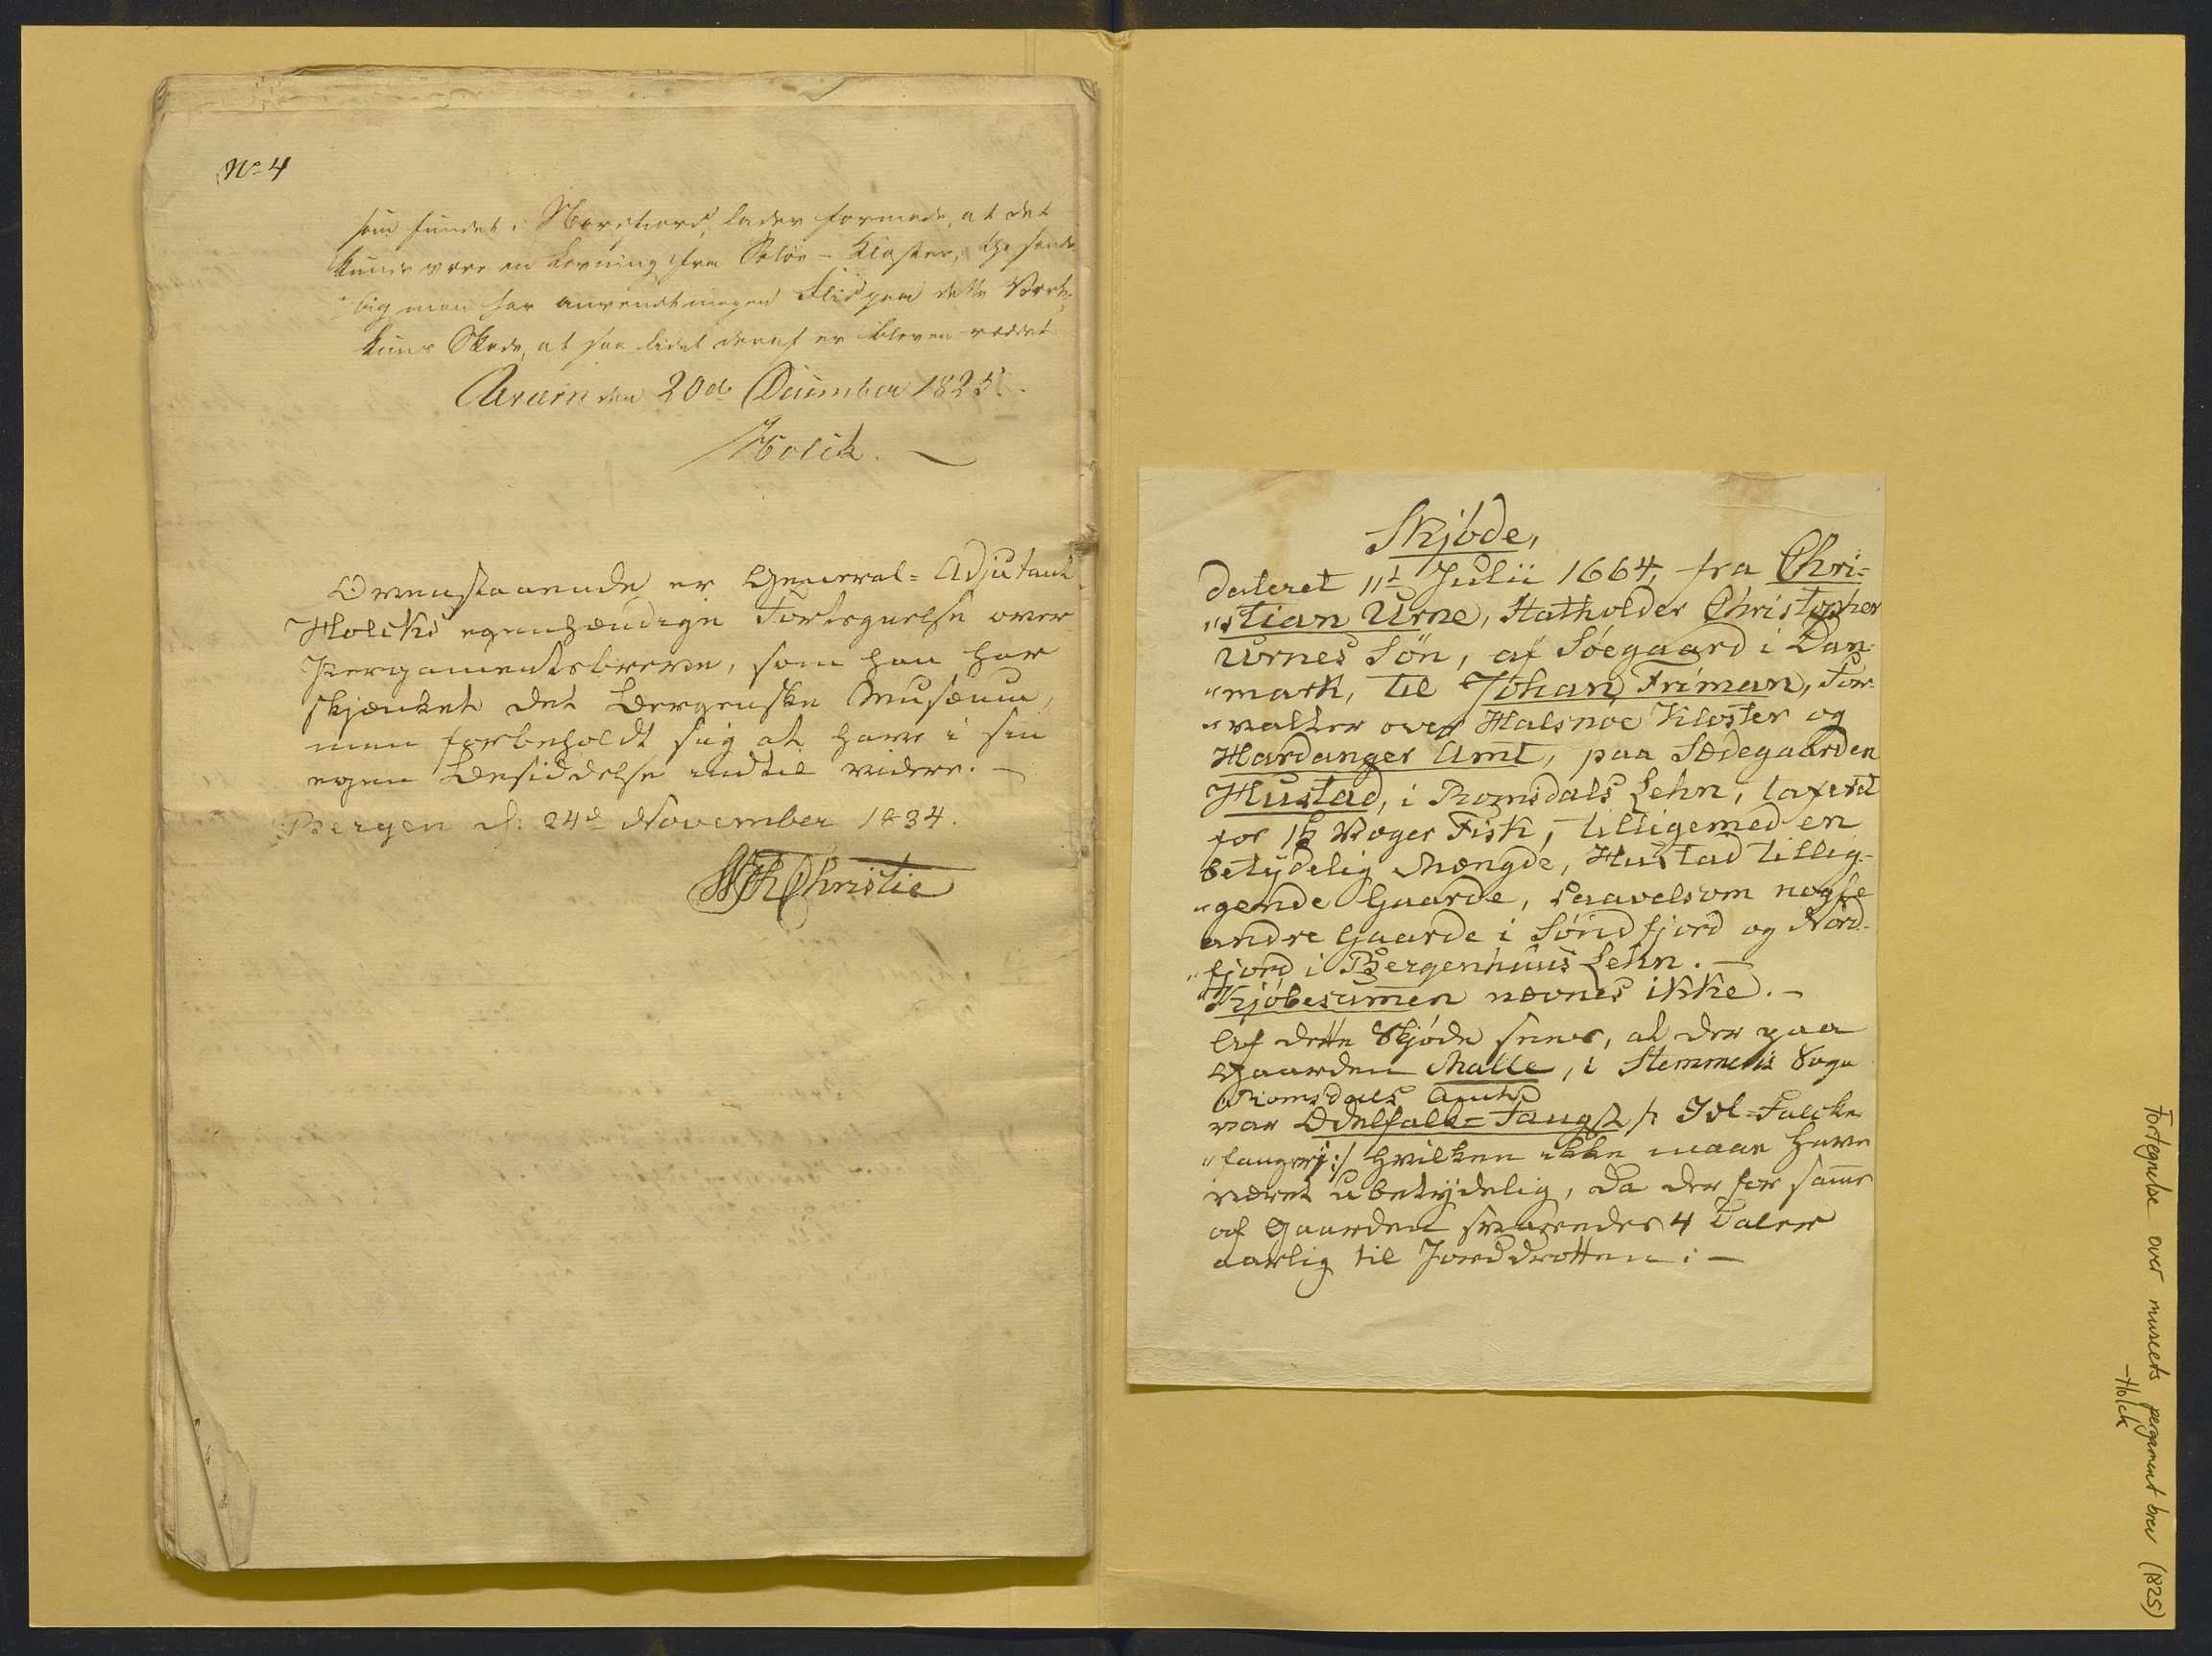 No 4
som fundet i Nordfiord, lader formode, at det
kunde være en Levning fra Seløe-Kloster,
man har anvendt megen Flid paa dette Værk,
kuns Skade, at saa lidet deraf er bleven reddet
Avarn den 20de December 1825.
Holck.
Ovenstaaende er General=Adjutant
Holcks egenhændige Fortegnelse over
Pergamentsbreve, som han har
skjænket det Bergenske Musæum,
men forbeholdt sig at have i sin
egen Besiddelse indtil videre. —
Bergen d: 24de November 1834.
WFKChristie
Skjöde,
dateret 11t Julii 1664, fra Chri=
"stian Urne, Statholder Christopher
Urnes Sön, af Söegaard i Dan-
"mark, til Johan Friman, For-
"valter over Halsnoe Kloster og
Hardanger Amt, paa Sædegaarden
Hustad, i Romsdals Lehn, taxeret
for Woger Fisk, tilligemed en
betydelig Mængde, Hustad tillig-
"gende Gaarde, saavelsom nogle
andre Gaarde i Söndfjord og Nord-
"fjord i Bergenhuus Lehn. —
Kjöbesummen nævnes ikke. —
Af dette Skjöde sees, at der paa
Gaarden Malle, i Stemmens Sogn
Romsdals Amt
var Ædelfalk=Fangst /: Jvl=Falcke
"fangerj:/ hvilken ikke maae have
været ubetydelig, da der for samme
af Gaarden svaredes 4 Daler
aarlig til Jorddrotten: —
Fortegnelse over museets pergament brev (1825)
- Holck